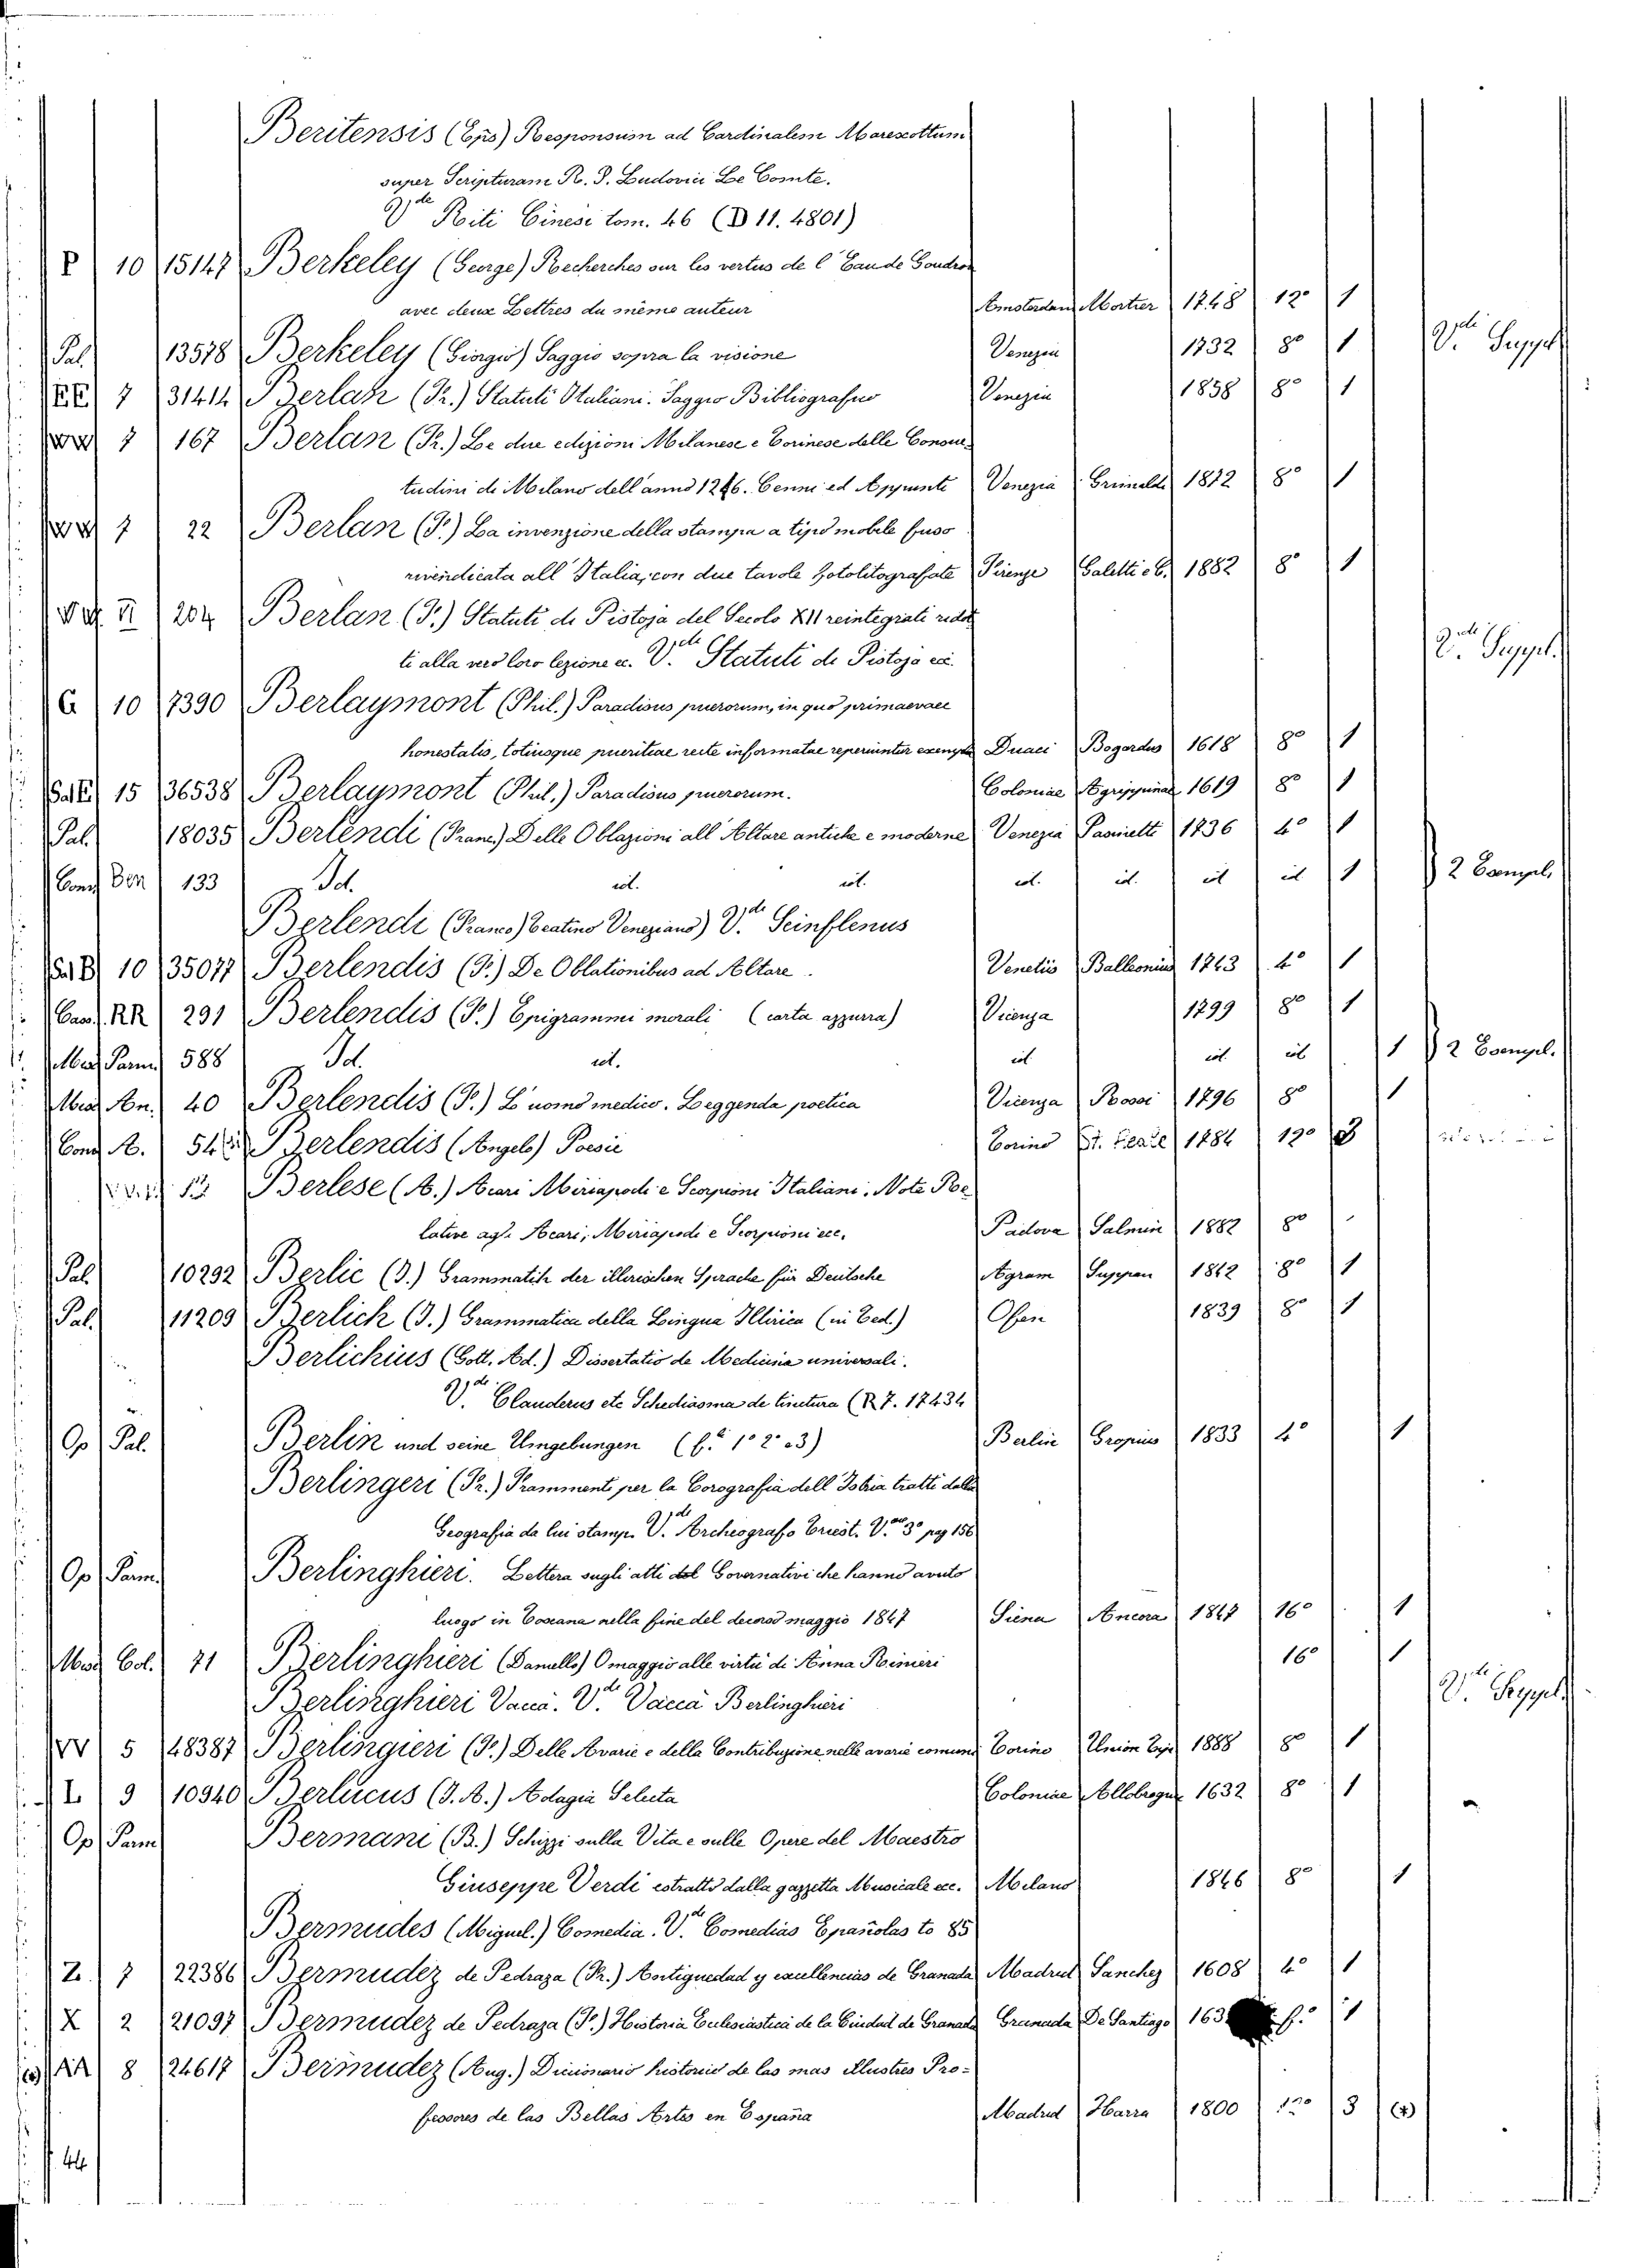 Beritensis (Eps) Responsum ad Cardinalem Marescottum
super Scripturam R. P. Ludovici Le Comte.
V.de Riti Cinesi tom. 46 (D 11. 4801)
P 10 15147 Berkeley (George) Recherches sur les vertus de l'Eau de Goudron
avec deux Lettres du même auteur Amsterdam Mortier 1748 12° 1
Pal. 13578 Berkeley (Giorgio) Saggio sopra la visione Venezia 1732 8° 1 V.di Suppl
EE 7 31414 Berlan (Fr.) Statuti Italiani. Saggio Bibliografico Venezia 1858 8° 1
7 167 Berlan (Fr.) Le due edizioni Milanese e Torinese delle Consue-
tudini di Milano dell'anno 1216. Cenni ed Appunti Venezia Grimaldi 1872 8° 1
7 22 Berlan (F.) La invenzione della stampa a tipo mobile fuso
rivendicata all'Italia, con due tavole fotolitografate Firenze Galetti e C. 1882 8° 1
204 Berlan (F.) Statuti di Pistoja del Secolo XII reintegrati ridot
ti alla vera loro lezione ec. V.de Statuti di Pistoja ecc. V.di Suppl.
G 10 7390 Berlaymont (Phil.) Paradisus puerorum, in quo primaevae
honestatis, totiusque pueritiae recte informatae reperiuntur exempla Duaci Bogardus 1618 8° 1
15 36538 Berlaymont (Phil.) Paradisus puerorum. Coloniae Agrippinae 1619 8° 1
Pal. 18035 Berlendi (Franc.) Delle Oblazioni all'Altare antiche e moderne Venezia Pasinelli 1736 4° 1
Cons Ben 133 Id. id. id. id. id. id. id. 1 2 Esempl.
Berlendi (Franco) Teatino Veneziano) V.de Seinflenus
10 35077 Berlendis (F.) De Oblationibus ad Altare. Venetiis Balleonius 1743 4° 1
Cass. RR 291 Berlendis (F.) Epigrammi morali (carta azzurra) Vicenza 1799 8° 1
Mes Parm 588 Id. id. id. id. id. 1 2 Esempl.
Mis An. 40 Berlendis (F.) L'uomo medico. Leggenda poetica Vicenza Rossi 1796 8° 1
Cons A. 54 Berlendis (Angelo) Poesie Torino St. Reale 1784 12° 3
13 Berlese (A.) Acari Miriapodi e Scorpioni Italiani. Nota Re
lative agli Acari, Miriapodi e Scorpioni ecc. Padova Salmin 1882 8°
Pal. 10292 Berlic (I.) Grammatik der illirischen Sprache für Deutsche Agram Suppan 1842 8° 1
Pal. 11209 Berlich (I.) Grammatica della Lingua Illirica (in Ted.) Ofen 1839 8° 1
Berlichius (Gott. Ad.) Dissertatio de Medicina universali.
V.de Clauderus etc Schediasma de tinctura (R 7. 17434
Op Pal. Berlin und seine Umgebungen (f.li 1° 2° e 3) Berlin Gropius 1833 4° 1
Berlingeri (Fr.) Frammenti per la Corografia dell'Istria tratti dalla
Geografia da lui stamp. V.de Archeografo Triest. V. 3° pag 156
Op Parm. Berlinghieri. Lettera sugli atti del Governativi che hanno avuto
luogo in Toscana nella fine del decorso maggio 1847 Siena Ancora 1847 16° 1
Mis Col. 71 Berlinghieri (Daniello) Omaggio alle virtù di Anna Rinieri 16° 1
Berlinghieri Vaccà. V.de Vaccà Berlinghieri V.di Suppl.
VV 5 48387 Berlingieri (F.) Delle Avarie e della Contribuzione nelle avarie comuni Torino Union Tip 1888 8° 1
L 9 10940 Berlucus (I. A.) Adagia Selecta Coloniae Allobrogue 1632 8° 1
Op Parm Bermani (B.) Schizzi sulla Vita e sulle Opere del Maestro
Giuseppe Verdi estratto dalla gazzetta Musicale ecc. Milano 1846 8° 1
Bermudes (Miguel.) Comedia. V.de Comedias Españolas to 85
Z. 7 22386 Bermudez de Pedraza (Fr.) Antiguedad y excellencias de Granada Madrid Sanchez 1608 4° 1
X 2 21097 Bermudez de Pedraza (F.) Historia Eccleciastica de la Ciudad de Granada Granada De Santiago 163 f.° 1
(a) AA 8 24617 Bermudez (Aug.) Dicionario historico de las mas illustres Pro-
fessores de las Bellas Artes en España Madrid Ibarra 1800 12° 3 (a)
44